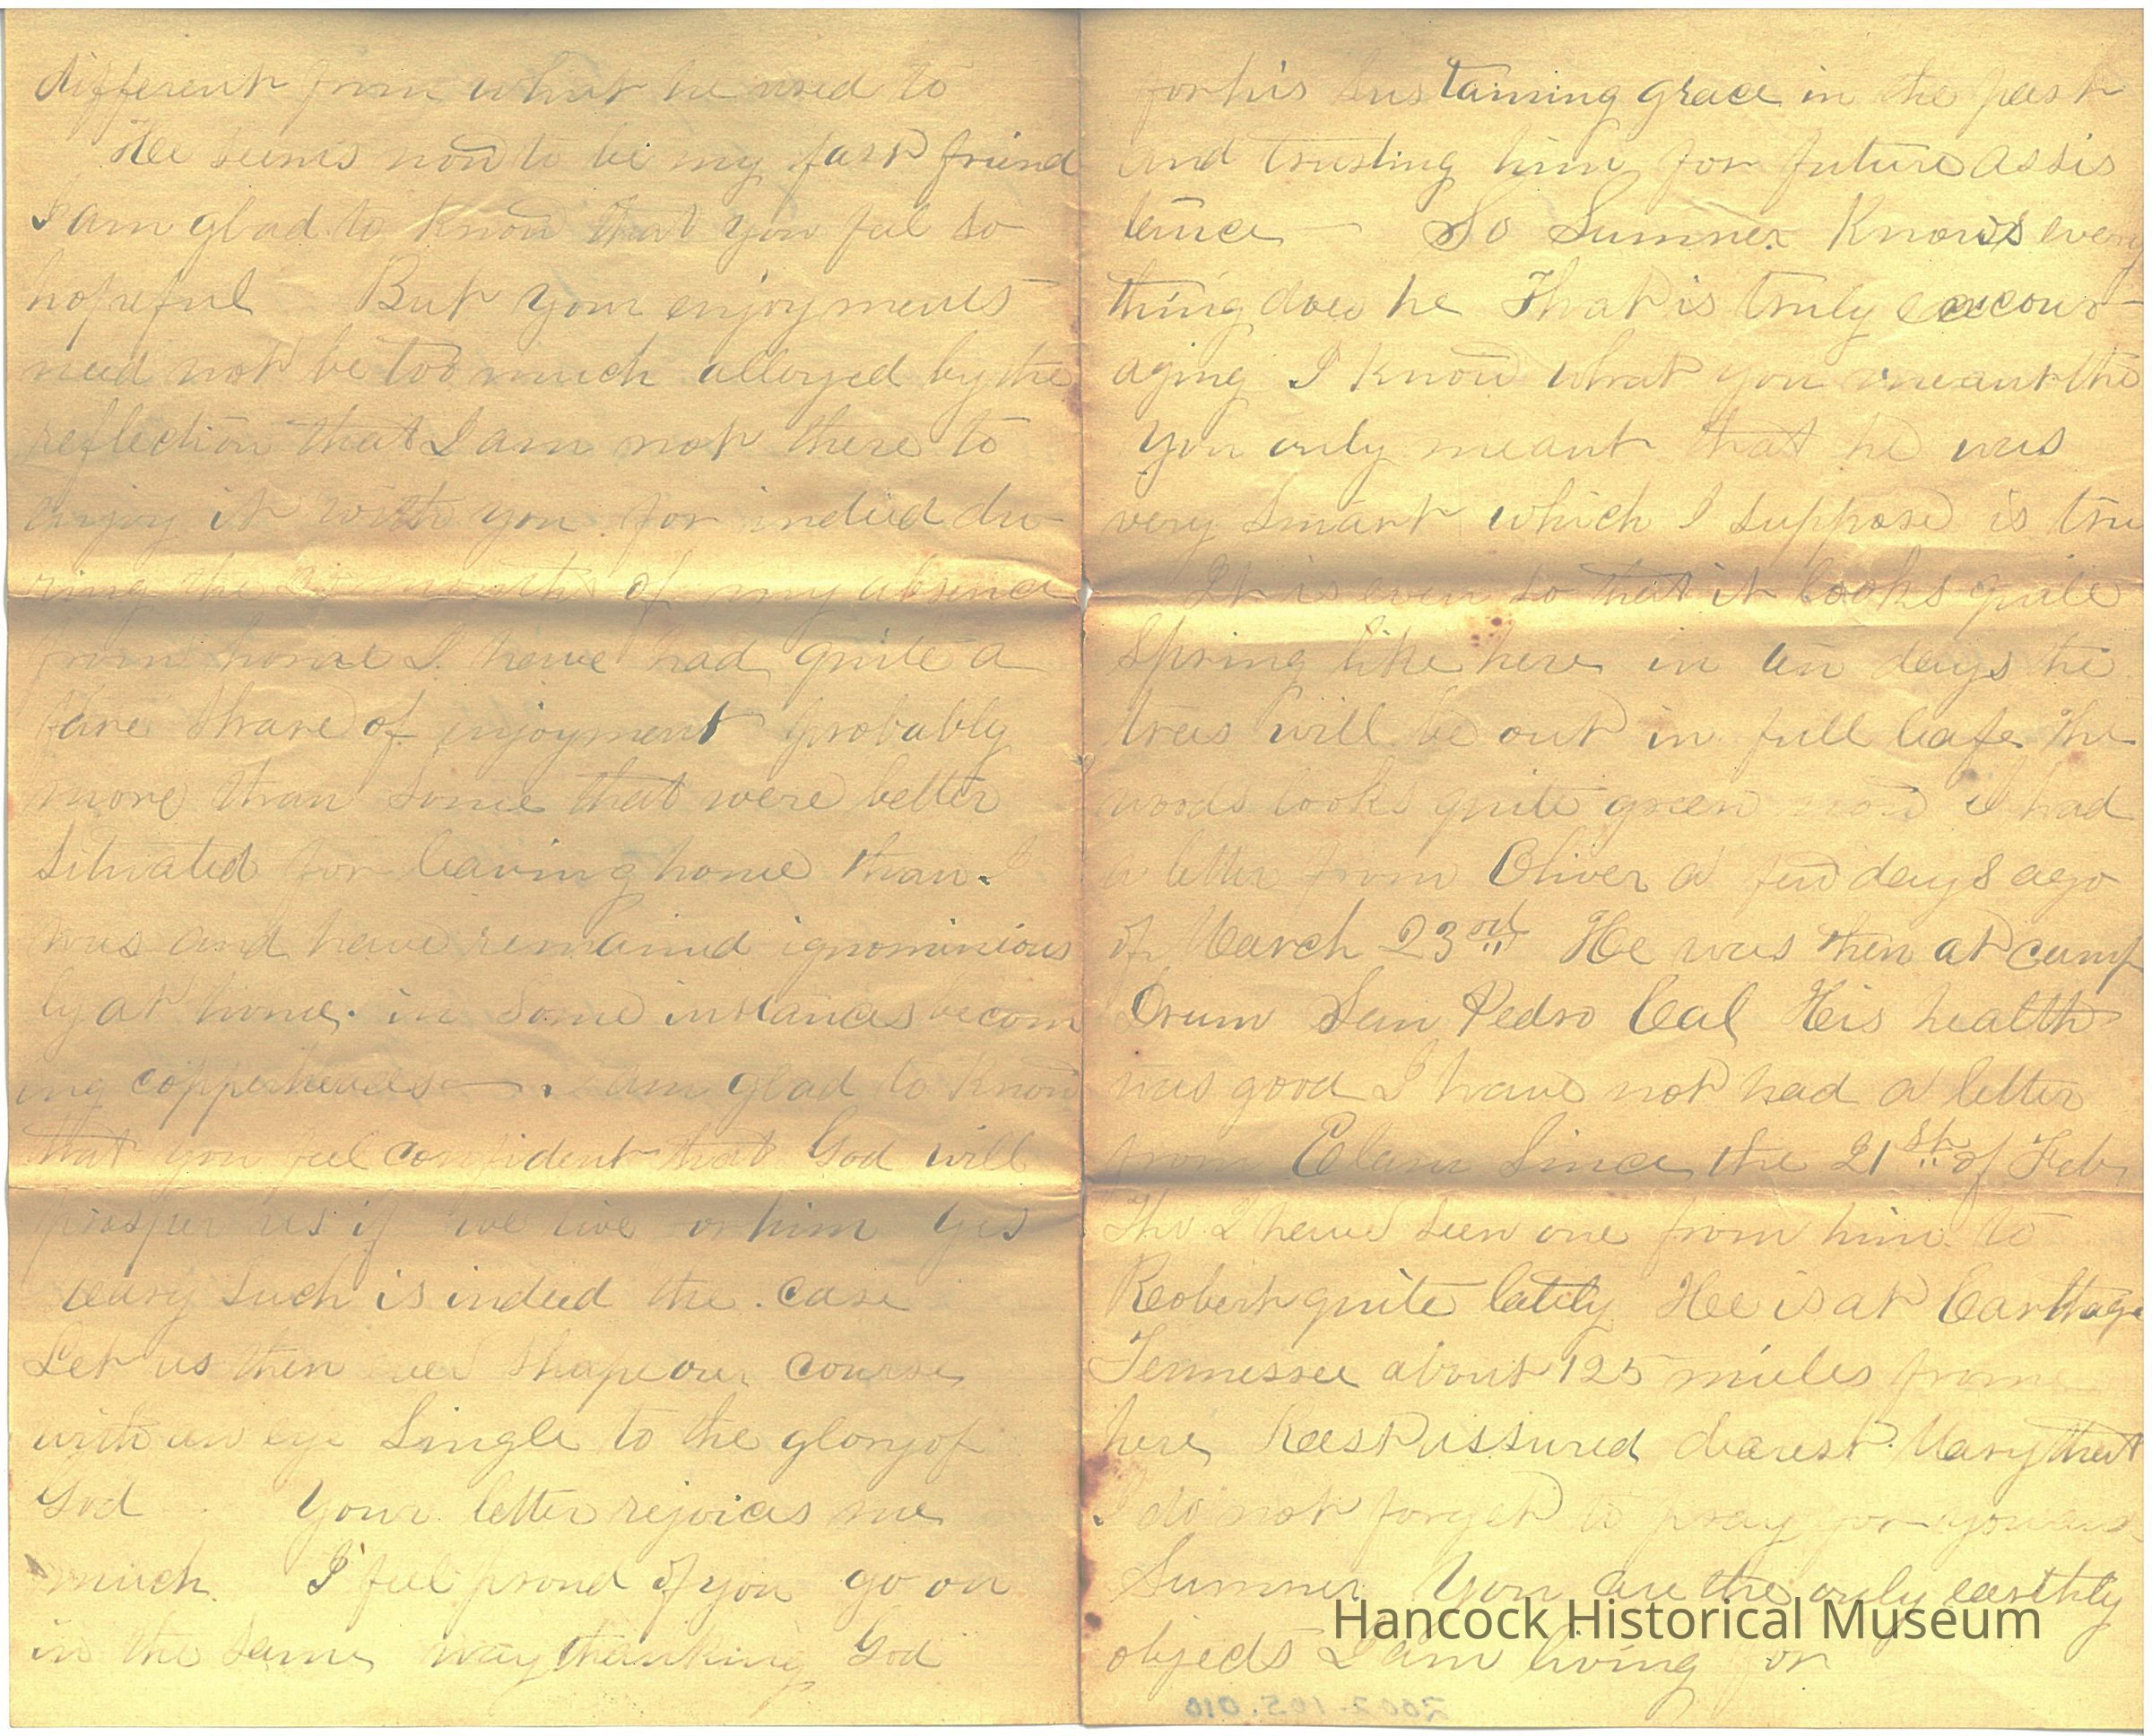 different from what he used to
He seems now to be my fast friend
I am glad to know that you feel so
hopeful But your enjoyments
need not be too much alloyed by the
reflection that I am not there to
enjoy it with you for indeed du-
ring the months of my absence
from home I have had quite a
fare share of enjoyment probably
more than some that were better
situated for leaving home than I
was and have remained ignominious
ly at home. in some instances becom
ing copperheads — I am glad to know
that you feel confident that God will
prosper us if we live for him Yes
Mary such is indeed the case
Let us then ever shape our course
with an eye single to the glory of
God Your letter rejoices me
much I feel proud of you go on
in the same way thanking God
for his sustaining grace in the past
and trusting him for future assis
tance - So Sumner Knows every
thing does he That is truly encour-
aging I know what you meant tho
you only meant that he was
very smart which I suppose is tru
It is even so that it looks quite
spring like here in ten days the
trees will be out in full leafe the
woods looks quite green now I had
a letter from Oliver a few days ago
of March 23rd He was then at camp
Drum San Pedro Cal His health
was good I have not had a letter
from Elam Since the 21st of Feb
Tho I have seen one from him to
Robert quite lately He is at Carthage
Tennessee about 125 miles from
here Rest assured dearest Mary that
I do not forget to pray for you and
Sumner You are the only earthly
objects I am living for
Hancock Historical Museum
2002.105.010